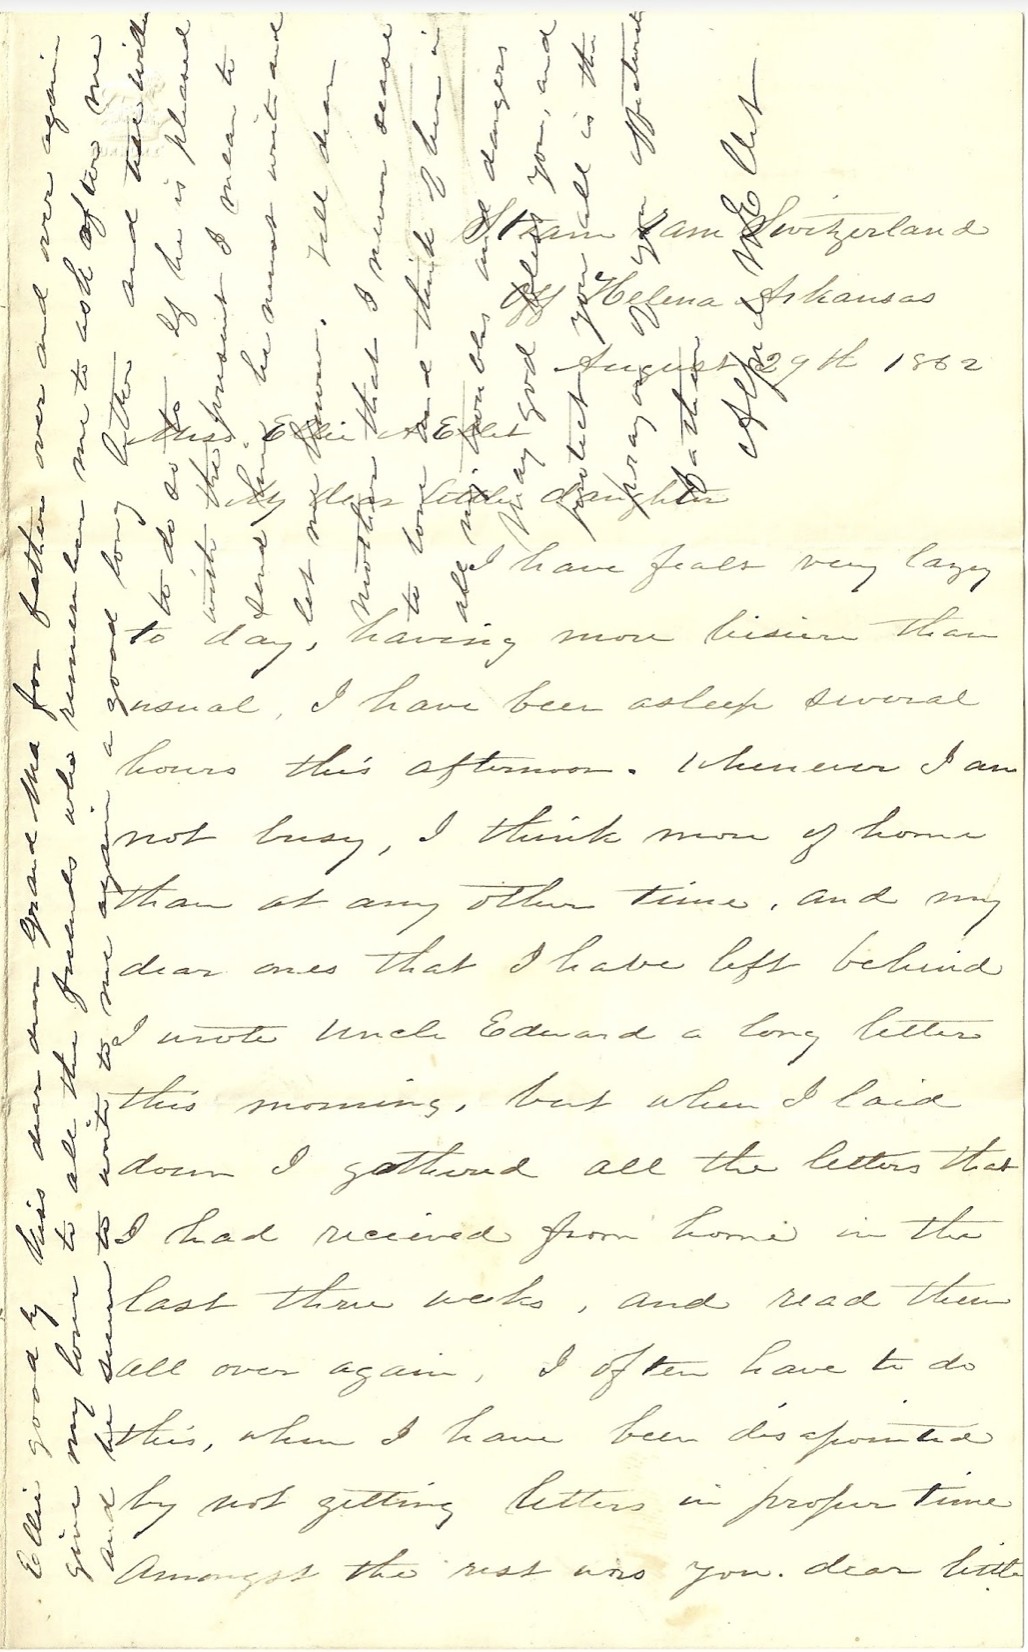 Steam Ram Switzerland
Off Helena Arkansas
August 29th 1862
Miss Ellie A Ellet
My dear little daughter
I have fealt very lazy
to day, having more leisure than
usual, I have been asleep several
hours this afternoon. Whenever I am
not busy, I think more of home
than at any other time, and my
dear ones that I have left behind
I wrote Uncle Edward a long letter
this morning, but when I laid
down I gathered all the letters that
I had received from home in the
last three weeks, and read them
all over again, I often have to do
this, when I have been disapointed
by not getting letters in proper time
Amongst the rest was you. dear little
Ellie good by kiss dear dear Grand Ma for father over and over again
give my love to all the friends who remember me to ask after me
and be sure to write to me again a good long letter and tell Willie
to do so to If he is pleased
with the present I mean to
send him he must write and
let me know. Tell dear
Mother that I never cease
to love and think of her in
all my troubles and dangers
May god bless you, and
protect you all is the
prayer of your affectionate
father
Alfred W Ellet